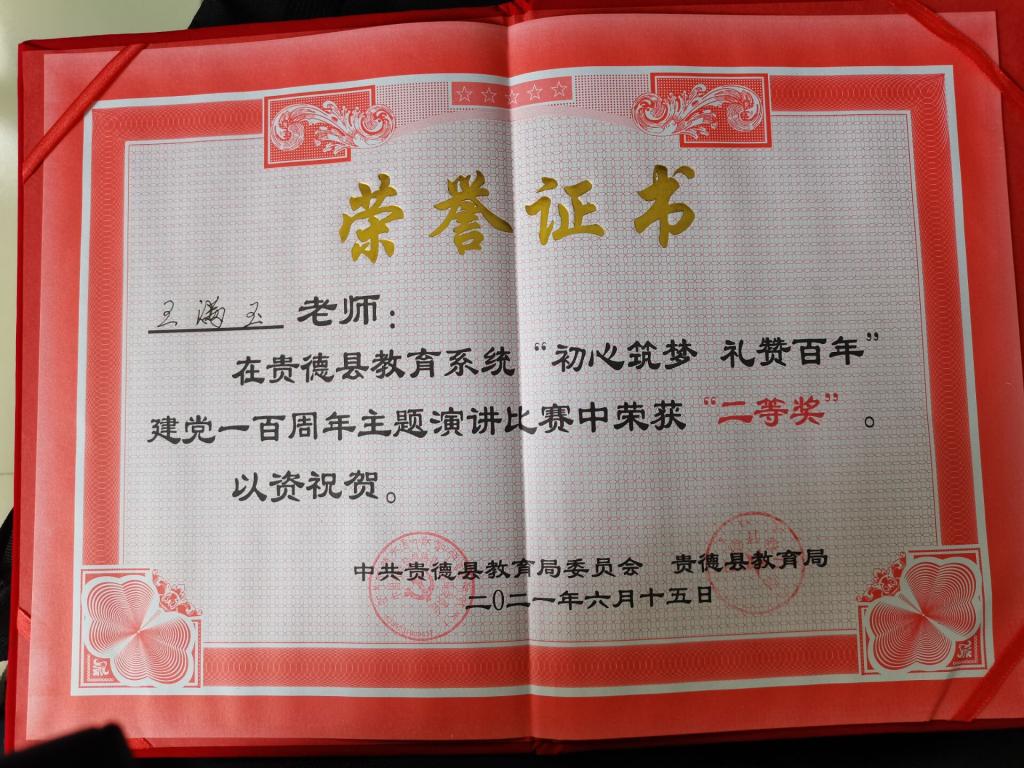 荣誉证书
王满玉 老师：
在贵德县教育系统“初心筑梦 礼赞百年”
建党一百周年主题演讲比赛中荣获“二等奖”。
以资祝贺。
中共贵德县教育局委员会 贵德县教育局
二〇二一年六月十五日